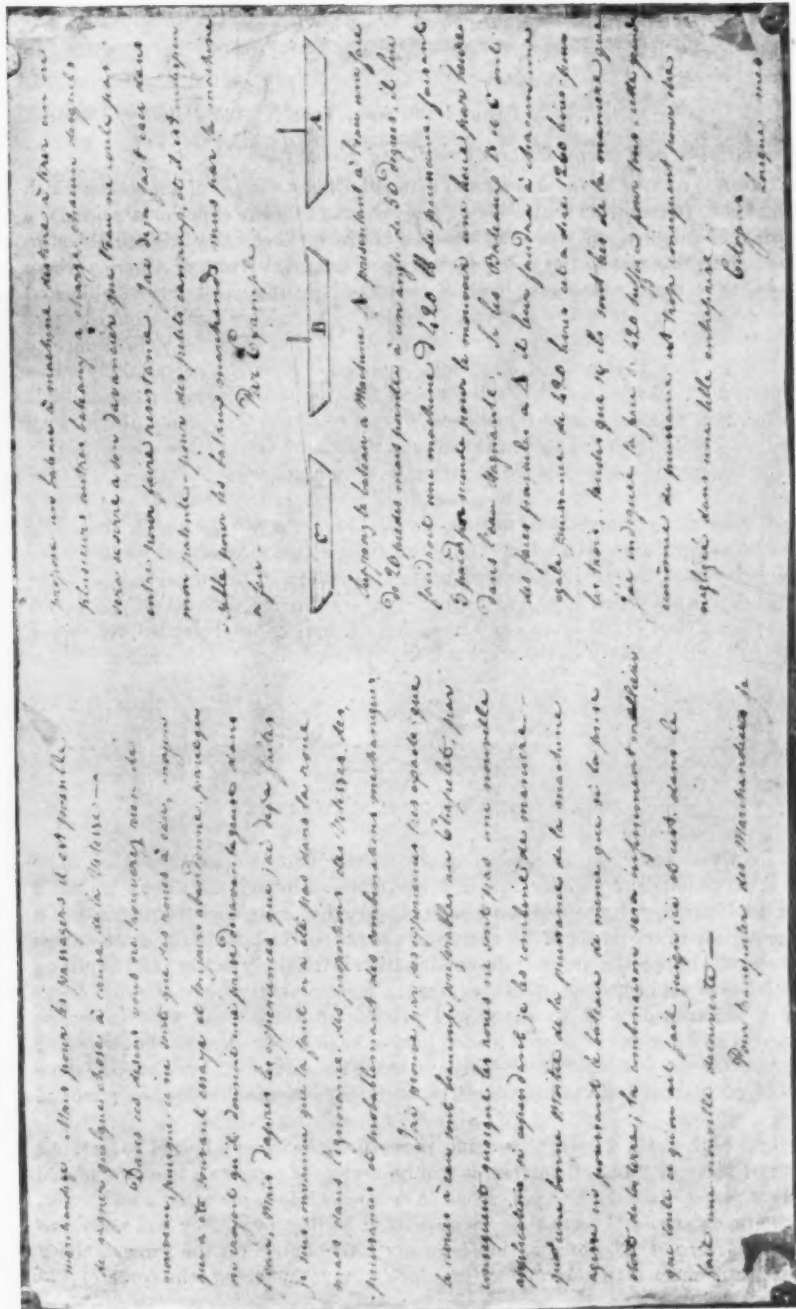 marchandise. Mais pour les passagers il est possible
de gagner quelque chose à cause de la Vitesse—
Dans ces dessins vous ne trouverez rien de
nouveau puisque ce ne sont que des roues à eau, moyen
qui a été souvent essayé et toujours abandonné parceque
on croyoit qu'il donnoit une prise désavantageuse dans
l'eau, Mais d'après les expériences que j'ai déjà faites
je suis convaincu que la faute n'a été pas dans la roue
mais dans l'ignorance des proportions, des vitesses, des
puissances, et probablement des combinaisons mechaniques
J'ai prouvé par des expériences très exactes que
les roues à eau sont beaucoup préférables aux Chapelets, par
conséquent quoique les roues ne sont pas une nouvelle
application, si cependant je les combine de manière
qu'une bonne Moitié de la puissance de la machine
agisse en poussant le bateau de même que si la prise
étoit de la terre, la combinaison sera infiniment meilleure
que toute ce qu'on ait fait jusqu'ici et c'est, dans le
fait une nouvelle découverte—
Pour transporter des Marchandises je
propose un bateau à machine destiné à tirer un ou
plusieurs autres bateaux à charge, chacun desquels
sera si serré à son devancier que l'eau ne coule pas
entre pour faire résistance. J'ai déjà fait ceci dans
mon patente pour des petits canaux, et il est indispen
sable pour les bateaux marchands mus par la machine
à feu
Par Exemple
C B A
Supposez le bateau à Machine A présentant à l'eau une face
de 20 pieds mais pointé à un angle de 50 degrees, il lui
faudroit une machine de 420 lb de puissance faisant
3 pieds par seconde pour le mouvoir une lieu par heure
dans l'eau Stagnante. Si les Bateaux B et C ont
des faces pareilles à A il leur faudra à chacun une
egale puissance de 420 livres c'est à dire 1260 livres pour
les trois, tandis que si ils sont liés de la manière que
j'ai indiquée la force de 420 suffira pour tous. cette grande
économie de puissance est trop marquant pour etre
négligée dans une telle entreprise
Citoyens
Lorsque mes